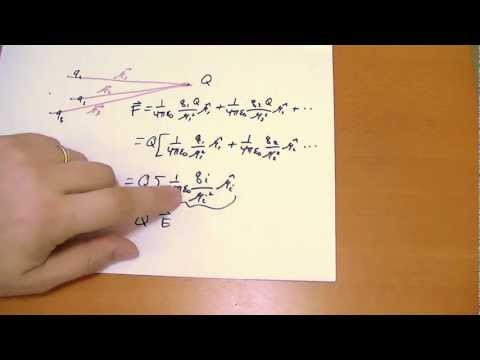 q₁ 𝓇⃗₁ Q
q₂ 𝓇⃗₂
q₃ 𝓇⃗₃
F⃗ = 1/4πε₀ q₁Q/𝓇₁² 𝓇̂₁ + 1/4πε₀ q₂Q/𝓇₂² 𝓇̂₂ + ···
= Q[1/4πε₀ q₁/𝓇₁² 𝓇̂₁ + 1/4πε₀ q₂/𝓇₂² 𝓇̂₂ ···
= Q Σ 1/4πε₀ qᵢ/𝓇ᵢ² 𝓇̂ᵢ
Q E⃗